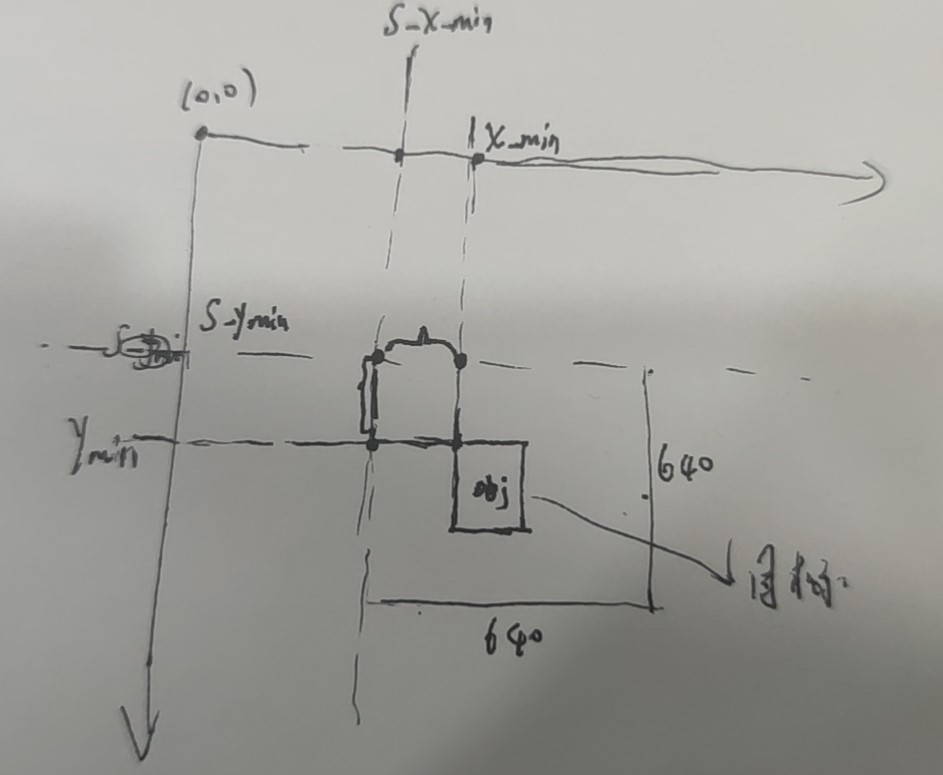 S-X-min
(0,0)
X-min
S-ymin
ymin
obj
640
640